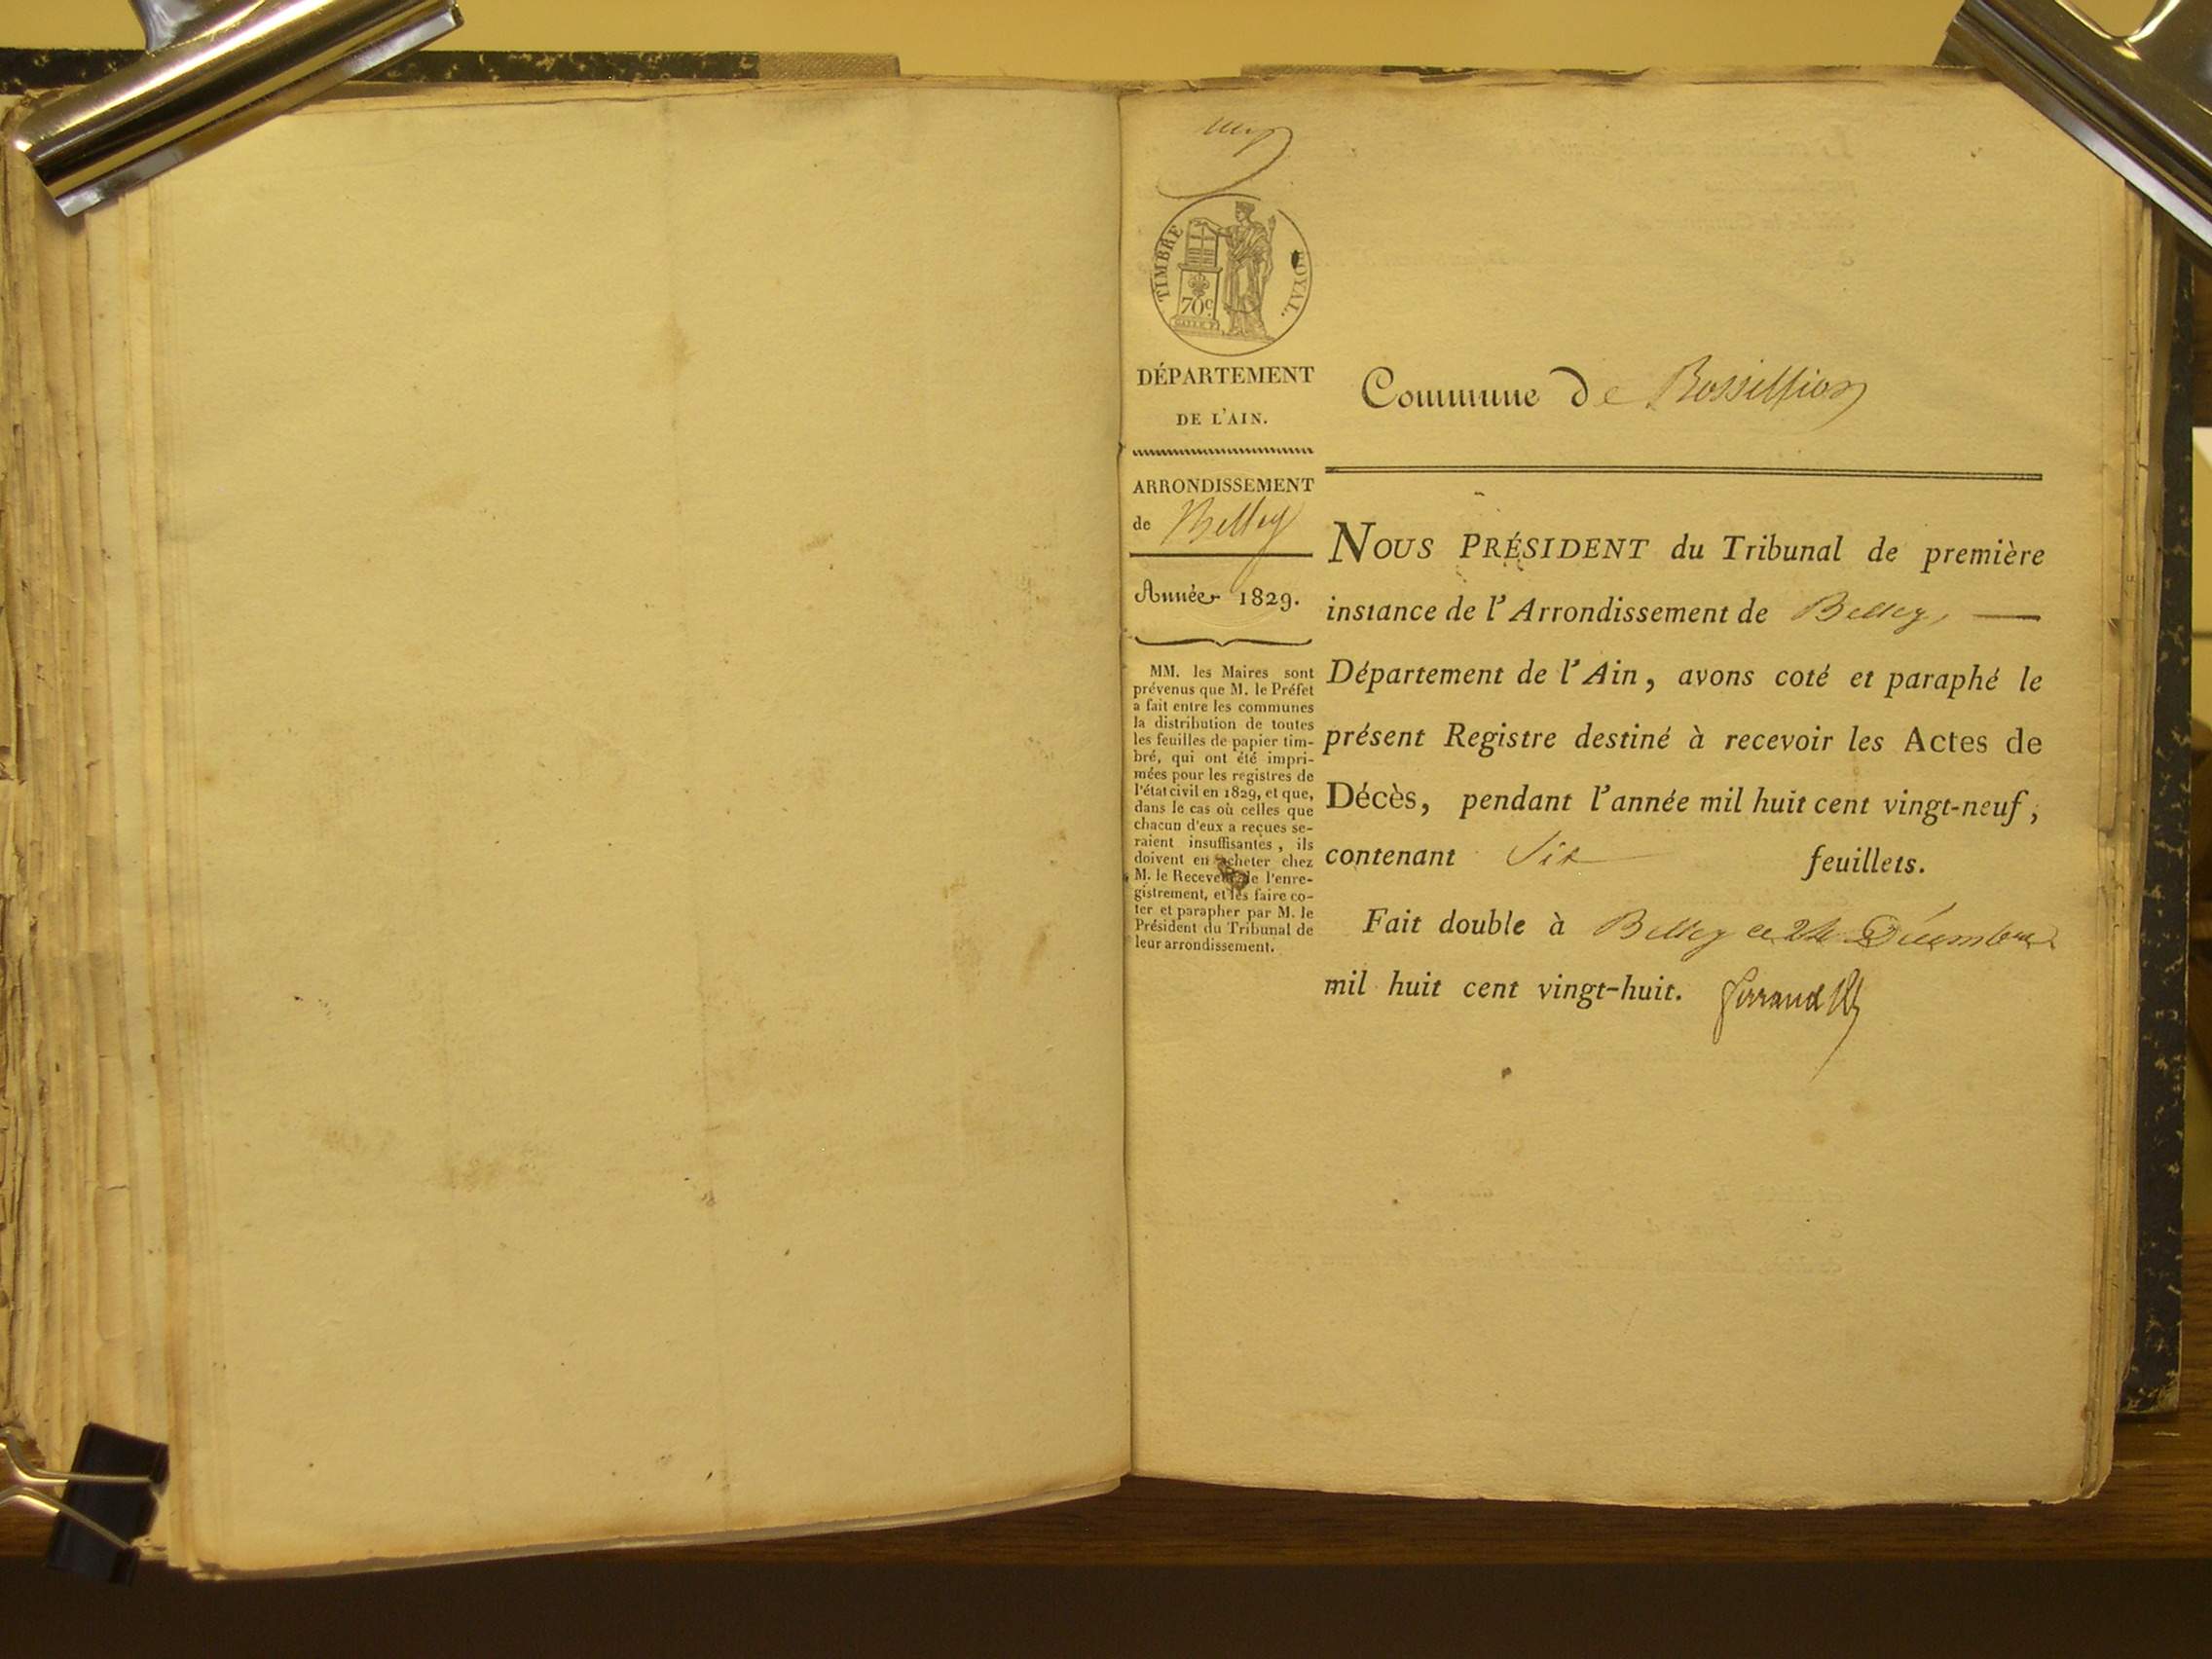 un
TIMBRE ROYAL.
70c
DÉPARTEMENT
DE L'AIN.
ARRONDISSEMENT
de Belley
Année 1829.
MM. les Maires sont
prévenus que M. le Préfet
a fait entre les communes
la distribution de toutes
les feuilles de papier tim-
bré, qui ont été impri-
mées pour les registres de
l'état civil en 1829, et que,
dans le cas où celles que
chacun d'eux a reçues se-
raient insuffisantes, ils
doivent en acheter chez
M. le Receveur de l'enre-
gistrement, et les faire co-
ter et parapher par M. le
Président du Tribunal de
leur arrondissement.
Commune de Rossillion
NOUS PRÉSIDENT du Tribunal de première
instance de l'Arrondissement de Belley,
Département de l'Ain, avons coté et paraphé le
présent Registre destiné à recevoir les Actes de
Décès, pendant l'année mil huit cent vingt-neuf,
contenant Six feuillets.
Fait double à Belley ce 24 Décembre
mil huit cent vingt-huit.